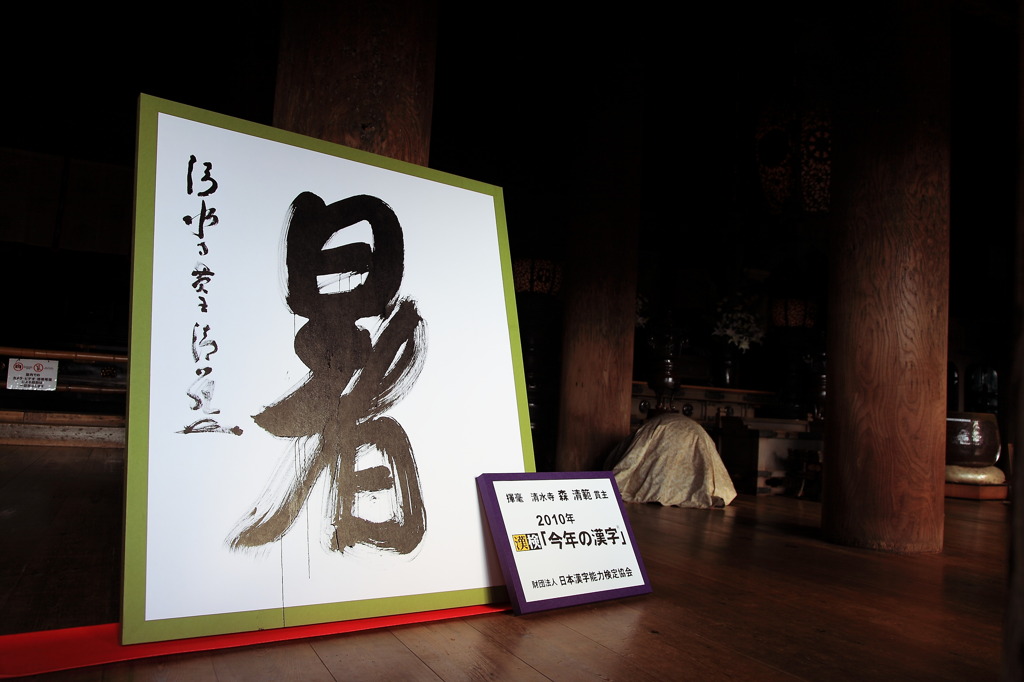 暑
清水寺貫主清範
揮毫 清水寺 森 清範 貫主
2010年
漢検「今年の漢字」
財団法人 日本漢字能力検定協会